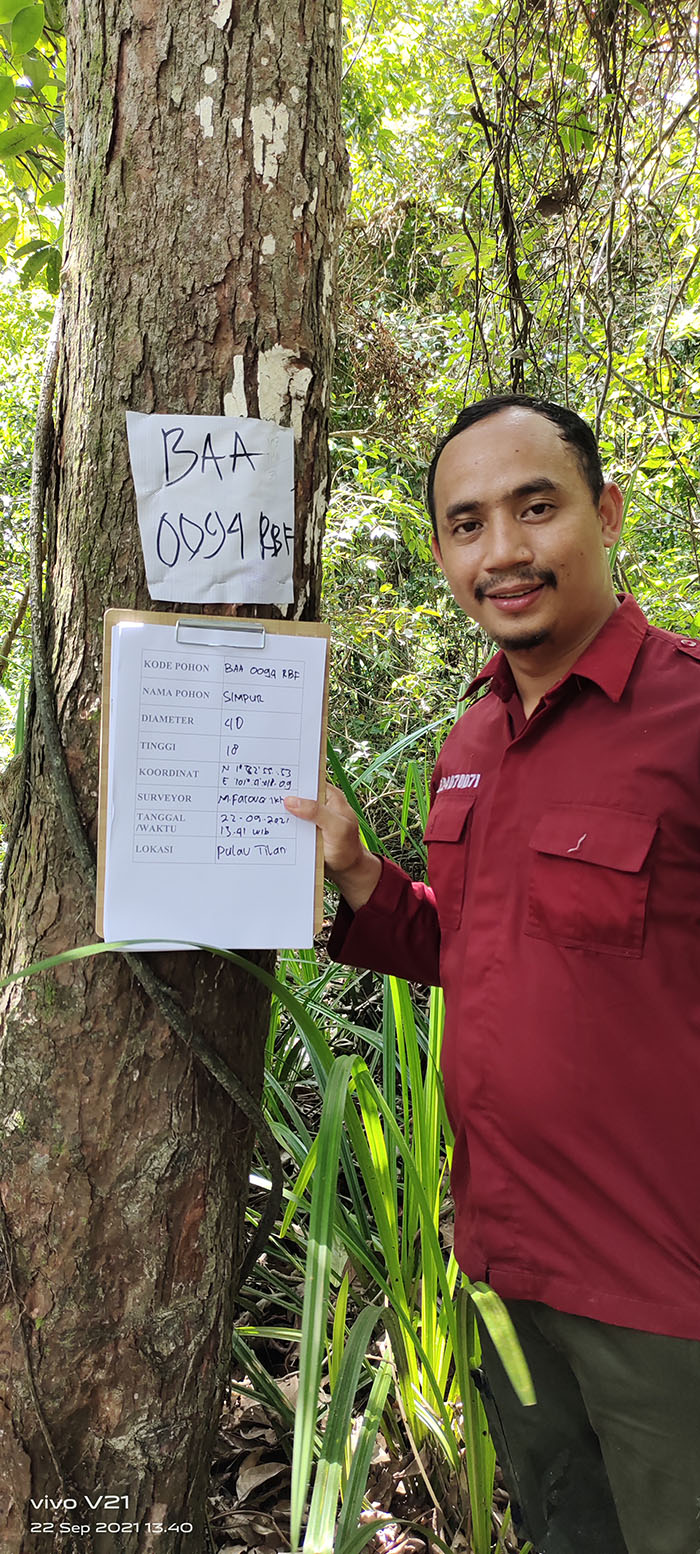 BAA
0094 RBF
KODE POHON BAA 0094 RBF
NAMA POHON SIMPUR
DIAMETER 40
TINGGI 18
KOORDINAT
SURVEYOR
TANGGAL 22-09-2021
/WAKTU 13.41 WIB
LOKASI Pulau Tilan
vivo V21
22 Sep 2021 13.40